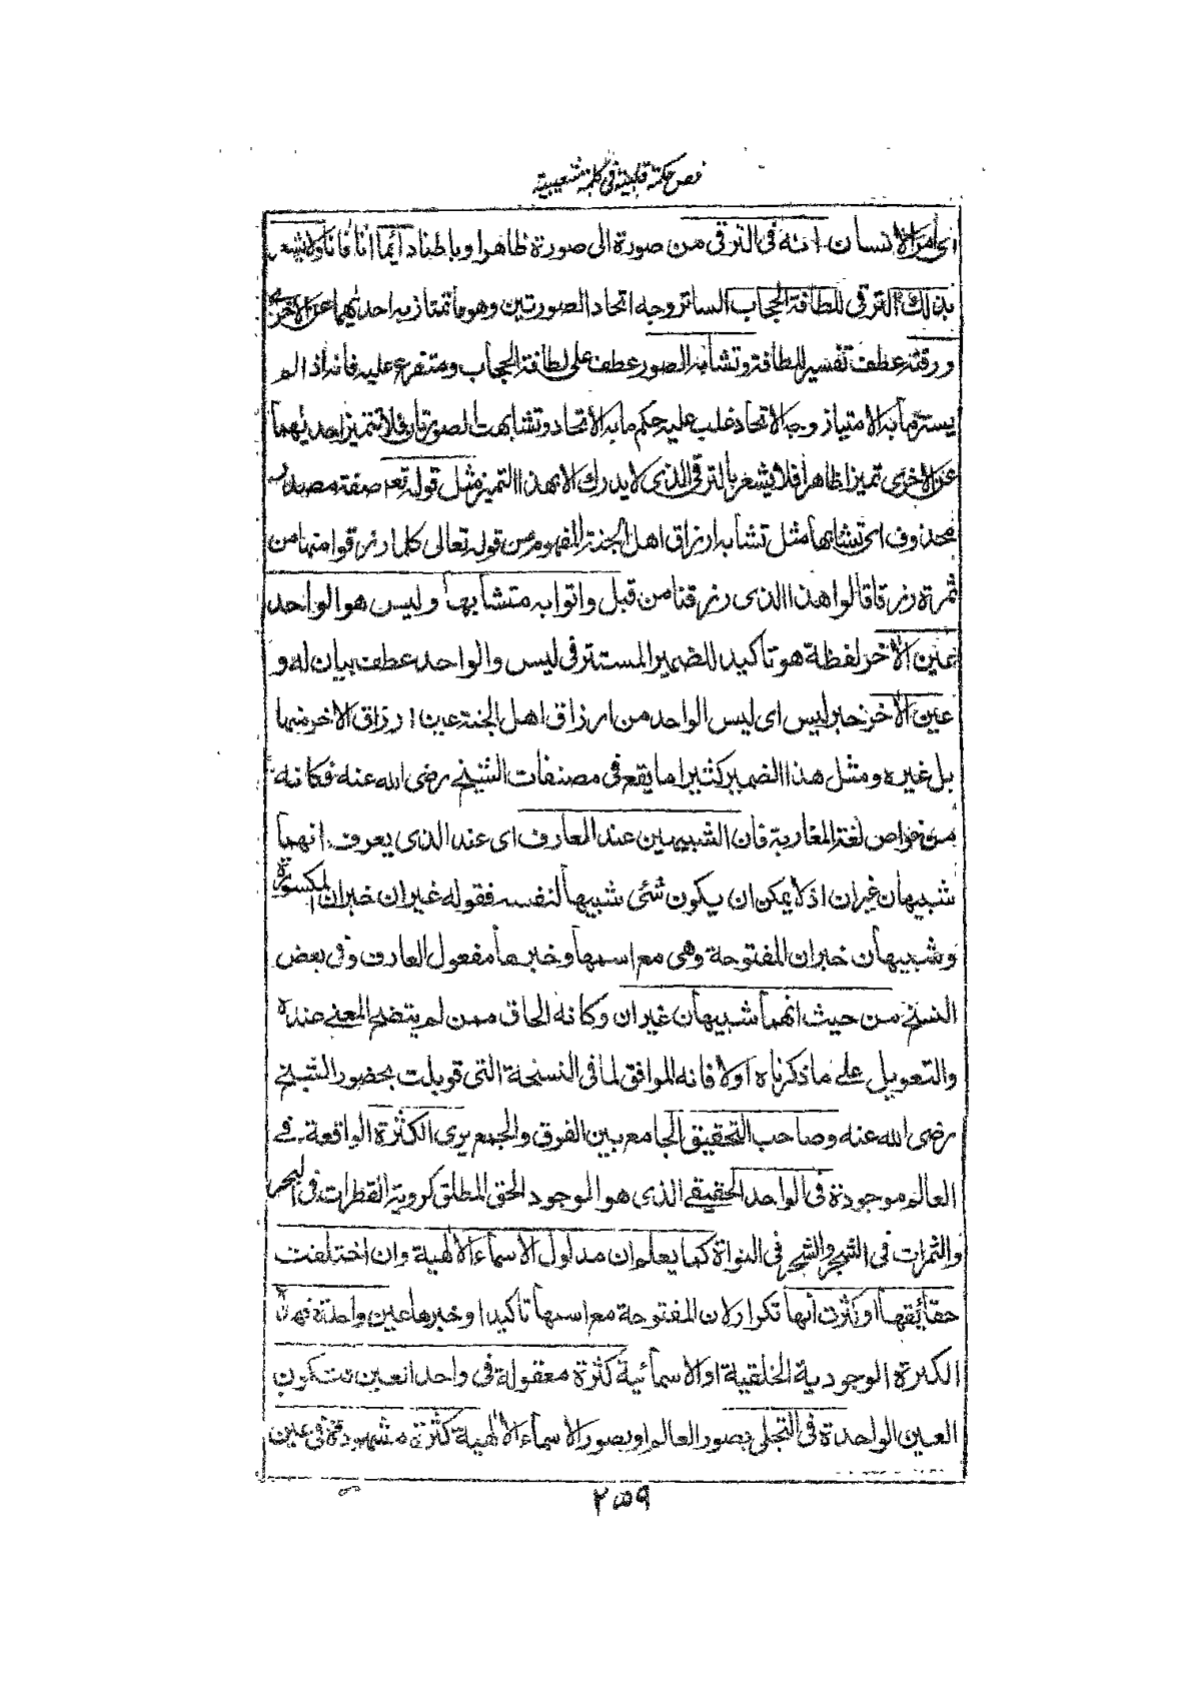 فص حكمة قلبية في كلمة شعيبية
اى امر الانسان انه فى الترقى من صورة الى صورة ظاهرا وباطنا دآئما آنا فآنا ولا يشعر
بذلك الترقى للطافة الحجاب الساتر وجه اتحاد الصورتين وهو ما تمتاز به احديهما عن الاخرى
ورقته عطف تفسير للطافة وتشابه الصور عطف على لطافة الحجاب ومتفرع عليه فانه اذا لم
يستر ما به الامتياز وجه الاتحاد غلب عليه حكم ما به الاتحاد وتشابهت الصورتان فلا تتميز احديهما
عن الاخرى تميزا ظاهرا فلا يشعر بالترقى الذى لا يدرك الا بهذا التميز مثل قوله تع صفة مصدر
محذوف اى تشابها مثل تشابه ارزاق اهل الجنة المفهوم من قوله تعالى كلما رزقوا منها من
ثمرة رزقا قالوا هذا الذى رزقنا من قبل واتوا به متشابها وليس هو الواحد
عين الآخر لفظة هو تاكيد للضمير المستتر فى ليس والواحد عطف بيان له و
عين الآخر خبر ليس اى ليس الواحد من ارزاق اهل الجنة عين ارزاق الاخر منها
بل غيره ومثل هذا الضمير كثيرا ما يقع فى مصنفات الشيخ رضى الله عنه فكانه
من خواص لغة المغاربة فان الشبيهين عند العارف اى عند الذى يعرف انهما
شبيهان غيران اذ لا يمكن ان يكون شئ شبيها لنفسه فقوله غيران خبر ان المكسورة
وشبيهان خبر ان المفتوحة وهى مع اسمها وخبرها مفعول العارف وفى بعض
النسخ من حيث انهما شبيهان غيران وكانه الحاق ممن لم يتضح المعنى عنده
والتعويل على ما ذكرناه اولا فانه الموافق لما فى النسخة التى قوبلت بحضور الشيخ
رضى الله عنه وصاحب التحقيق الجامع بين الفرق والجمع يرى الكثرة الواقعة فى
العالم موجودة فى الواحد الحقيقى الذى هو الموجود الحق المطلق كروية القطرات فى البحر
والثمرات فى الشجر والشجر فى النواة كما يعلم ان مدلول الاسماء الالهية وان اختلفت
حقآئقها وكثرت انها تكرار لان المفتوحة مع اسمها تأكيدا وخبرها عين واحدة فهذه
الكثرة الوجودية الخلقية او الاسمائية كثرة معقولة فى واحد العين فتكون
العين الواحدة فى التجلى بصور العالم او بصور الاسماء الالهية كثرة مشهودة فى عين
٢٥٩